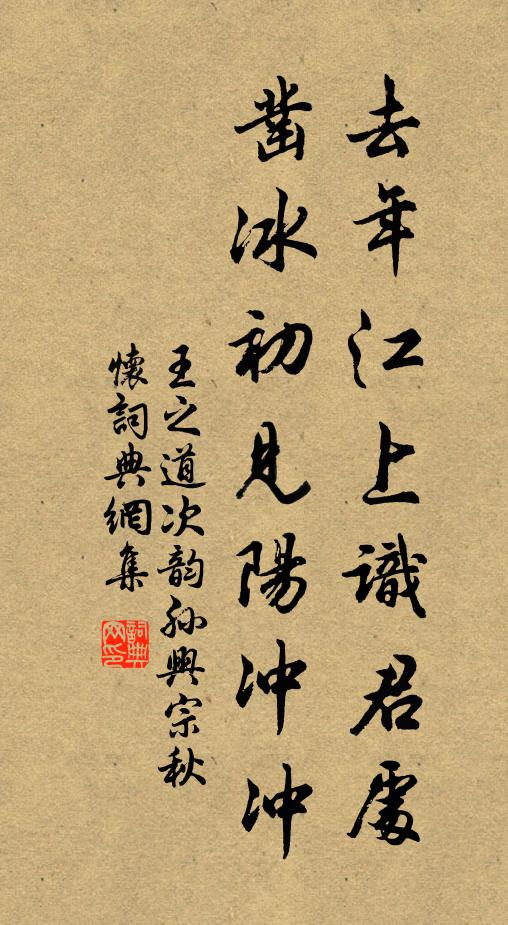 去年江上識君處
鑿冰初見陽冲冲
王之道次韵孫興宗秋
懷詞典網集
詞典
网印